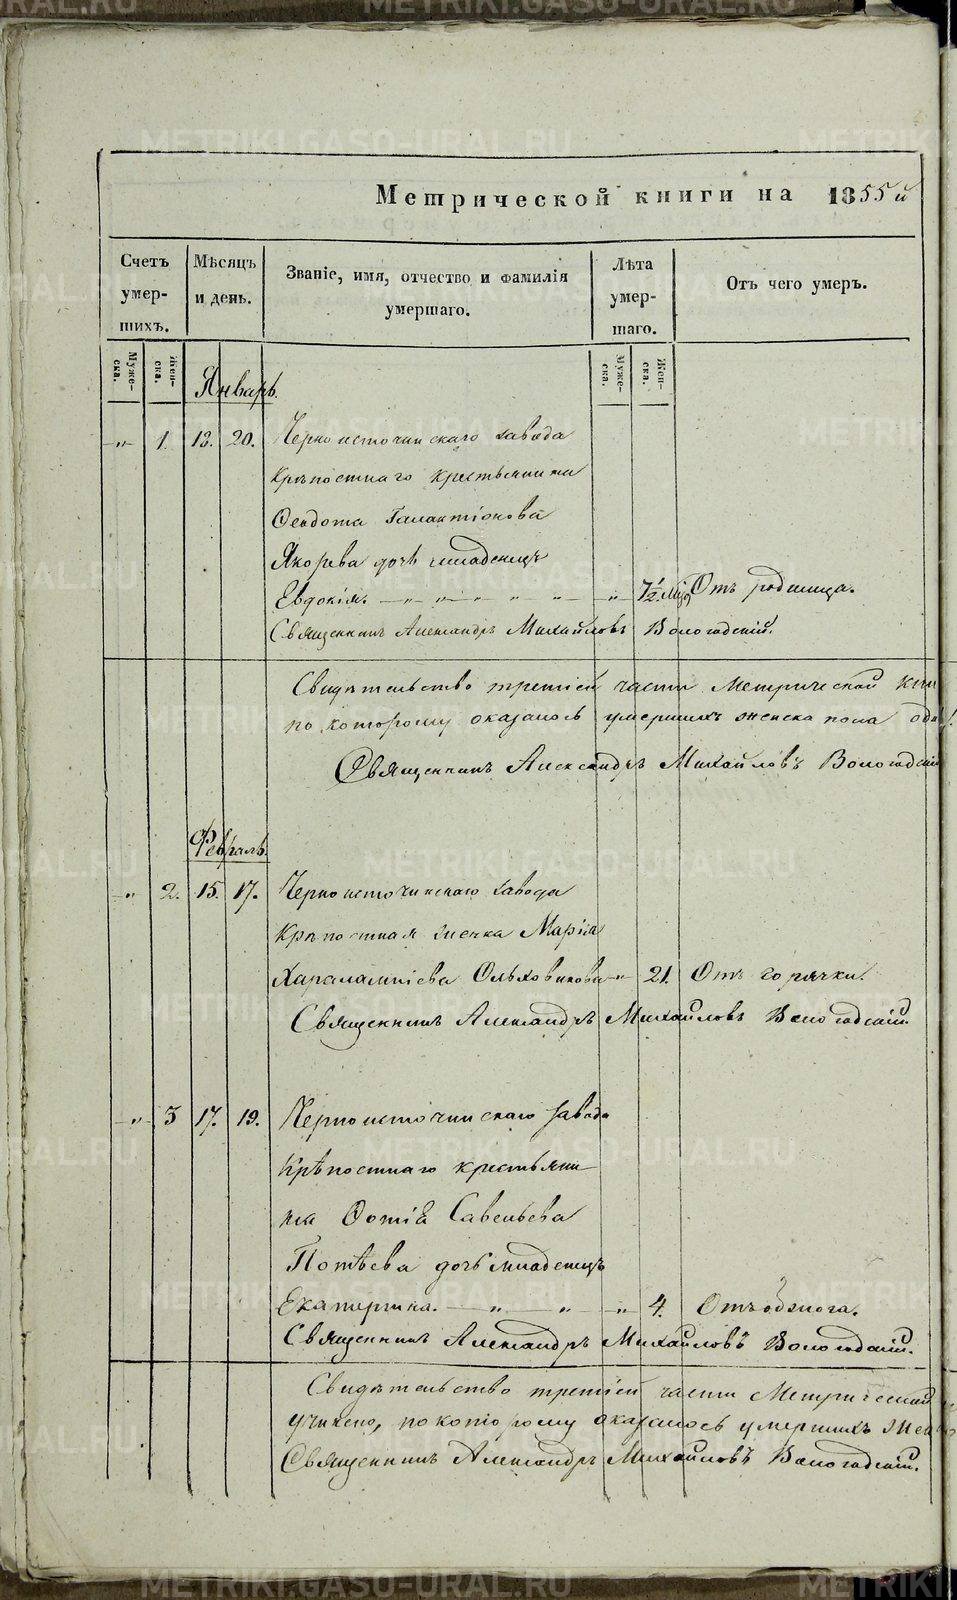 METRIKI.GASO-URAL.RU
Метрической книги на 1855й
Счетъ умер- шихъ.
Мѣсяцъ и день.
Званіе, имя, отчество и фамилія умершаго.
Лѣта умер- шаго.
Отъ чего умеръ.
Муже- ска.
Жен- ска.
Муже- ска.
Жен- ска.
Январь.
" 1. 18. 20. Черноисточинскаго завода
Крѣпостнаго крестьянина
Ѳеодота Галактіонова
Якорева дочь младенецъ
Евдокія. " " " " " " 7½ Отъ родимца.
Священникъ Александръ Михайловъ Вологодскій.
Свидѣтельство третіей части Метрической
по которому оказалось умершихъ женска пола
Священникъ Александръ Михайловъ Вологодскій
Февраль.
" 2. 15. 17. Черноисточинскаго завода
Крѣпостная Марія
Харалампіева Ольховикова " 21. Отъ горячки.
Священникъ Александръ Михайловъ Вологодскій.
" 3 17. 19. Черноисточинскаго завода
Крѣпостнаго крестьяни
на Фотія Савельева
Потѣева дочь младенецъ
Екатерина. " " " 4. Отъ
Священникъ Александръ Михайловъ Вологодскій.
Свидѣтельство третіей части Метрической
учинено, по которому оказалось умершихъ
Священникъ Александръ Михайловъ Вологодскій.